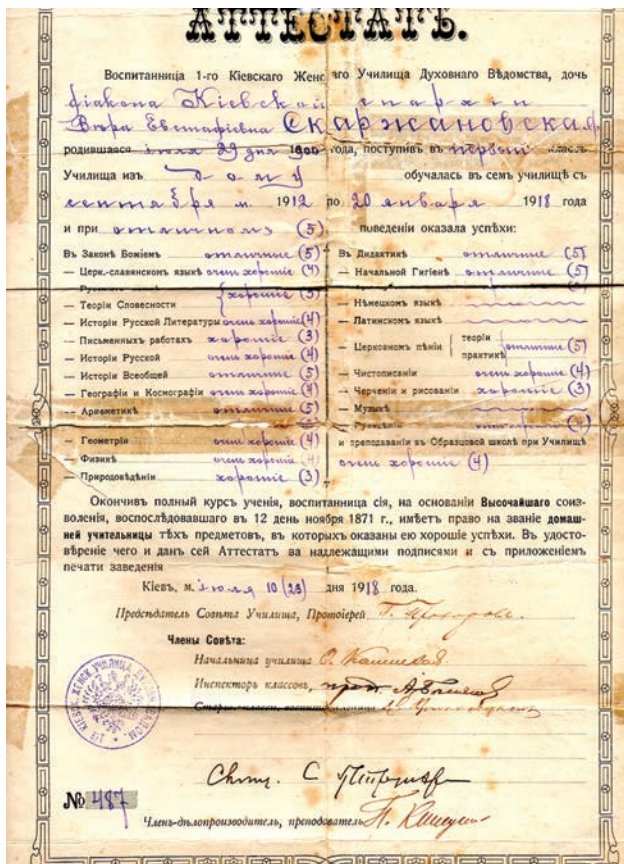 АТТЕСТАТЪ.
Воспитанница 1-го Кіевскаго Женскаго Училища Духовнаго Вѣдомства, дочь
діакона Кіевской епархіи
Вѣра Евстафіевна Скаржановская,
родившаяся іюля 29 дня 1900 года, поступивъ въ первый классъ
Училища изъ дому обучалась въ семъ училищѣ съ
сентября м. 1912 по 20 января 1918 года
и при отличномъ (5) поведеніи оказала успѣхи:
Въ Законѣ Божіемъ отличные (5)
— Церк.-славянскомъ языкѣ очень хорошіе (4)
— Теоріи Словесности хорошіе (3)
— Исторіи Русской Литературы очень хорошіе (4)
— Письменныхъ работахъ хорошіе (3)
— Исторіи Русской очень хорошіе (4)
— Исторіи Всеобщей отличные (5)
— Географіи и Космографіи очень хорошіе (4)
— Ариѳметикѣ отличные (5)
— Геометріи очень хорошіе (4)
— Физикѣ очень хорошіе (4)
— Природовѣдѣніи хорошіе (3)
Въ Дидактикѣ отличные (5)
— Начальной Гигіенѣ отличные (5)
— Нѣмецкомъ языкѣ
— Латинскомъ языкѣ
— Церковномъ пѣніи теоріи практикѣ отличные (5)
— Чистописаніи очень хорошіе (4)
— Черченіи и рисованіи хорошіе (3)
— Музыкѣ
— Рукодѣліи очень хорошіе (4)
и преподаваніи въ Образцовой школѣ при Училищѣ
очень хорошіе (4)
Окончивъ полный курсъ ученія, воспитанница сія, на основаніи Высочайшаго соиз-
воленія, воспослѣдовавшаго въ 12 день ноября 1871 г., имѣетъ право на званіе домаш-
ней учительницы тѣхъ предметовъ, въ которыхъ оказаны ею хорошіе успѣхи. Въ удосто-
вѣреніе чего и данъ сей Аттестатъ за надлежащими подписями и съ приложеніемъ
печати заведенія
Кіевъ, м. іюля 10 (23) дня 1918 года.
Предсѣдатель Совѣта Училища, Протоіерей
Члены Совѣта:
Начальница училища
Инспекторъ классовъ,
№ 487
Членъ-дѣлопроизводитель, преподаватель